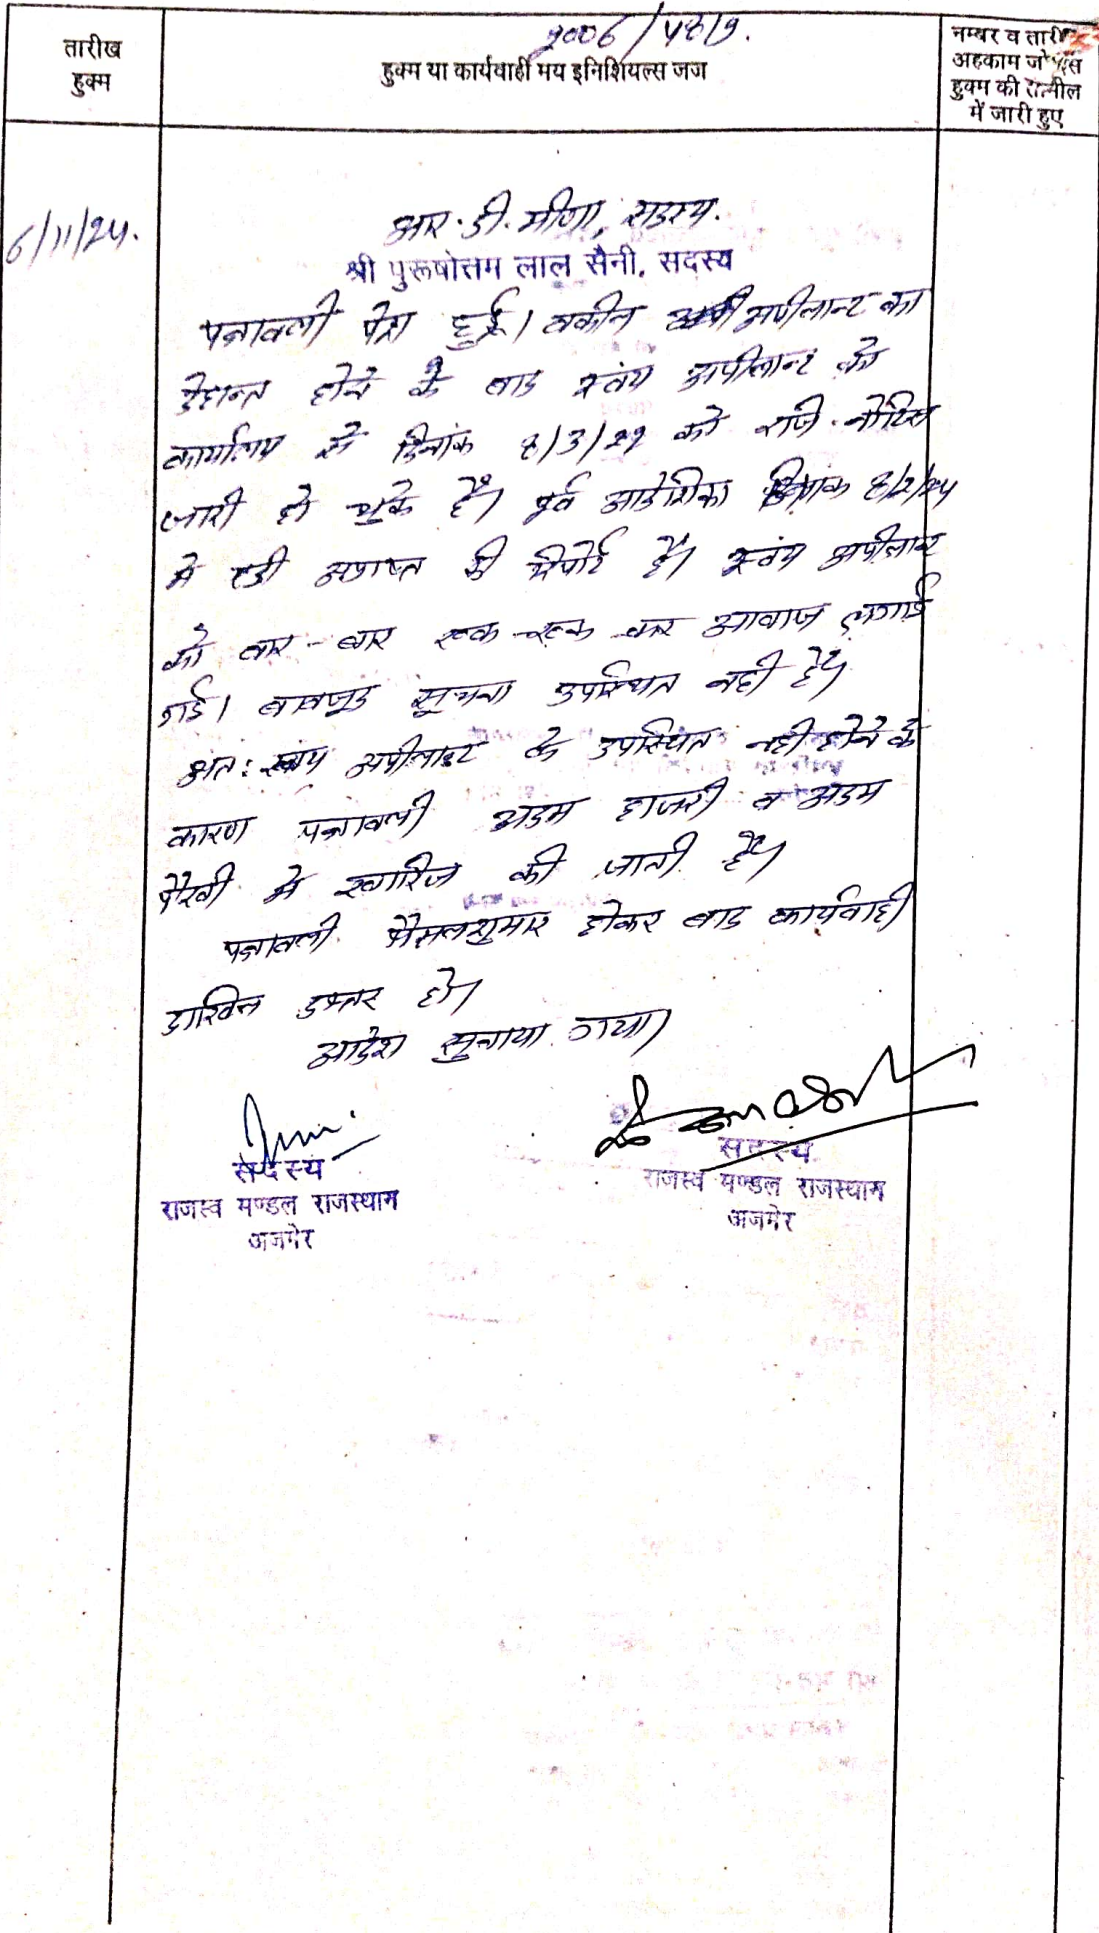 2006/4819.
तारीख
हुक्म
हुक्म या कार्यवाही मय इनिशियल्स जज
नम्बर व तारीख
अहकाम जो इस
हुक्म की तामील
में जारी हुए
6/11/24.
आर. डी. मीणा, सदस्य.
श्री पुरूषोत्तम लाल सैनी, सदस्य
पत्रावली पेश हुई। वकील अपीलान्ट का
देहान्त होने के बाद स्वंय अपीलान्ट को
कार्यालय से दिनांक 8/3/22 को रजि. नोटिस
जारी हो चुके है। पूर्व आदेशिका दिनांक 8/2/24
मे एडी अप्राप्त की रिपोर्ट है। स्वंय अपीलान्ट
को बार-बार रूक-रूक कर आवाज लगाई
गई। बावजूद सूचना उपस्थित नही है।
अत: स्वंय अपीलान्ट के उपस्थित नही होने के
कारण पत्रावली अदम हाजरी व अदम
पैरवी मे खारिज की जाती है।
पत्रावली फैसलशुमार होकर बाद कार्यवाही
दाखिल दफ्तर हो।
आदेश सुनाया गया।
सदस्य
राजस्व मण्डल राजस्थान
अजमेर
सदस्य
राजस्व मण्डल राजस्थान
अजमेर